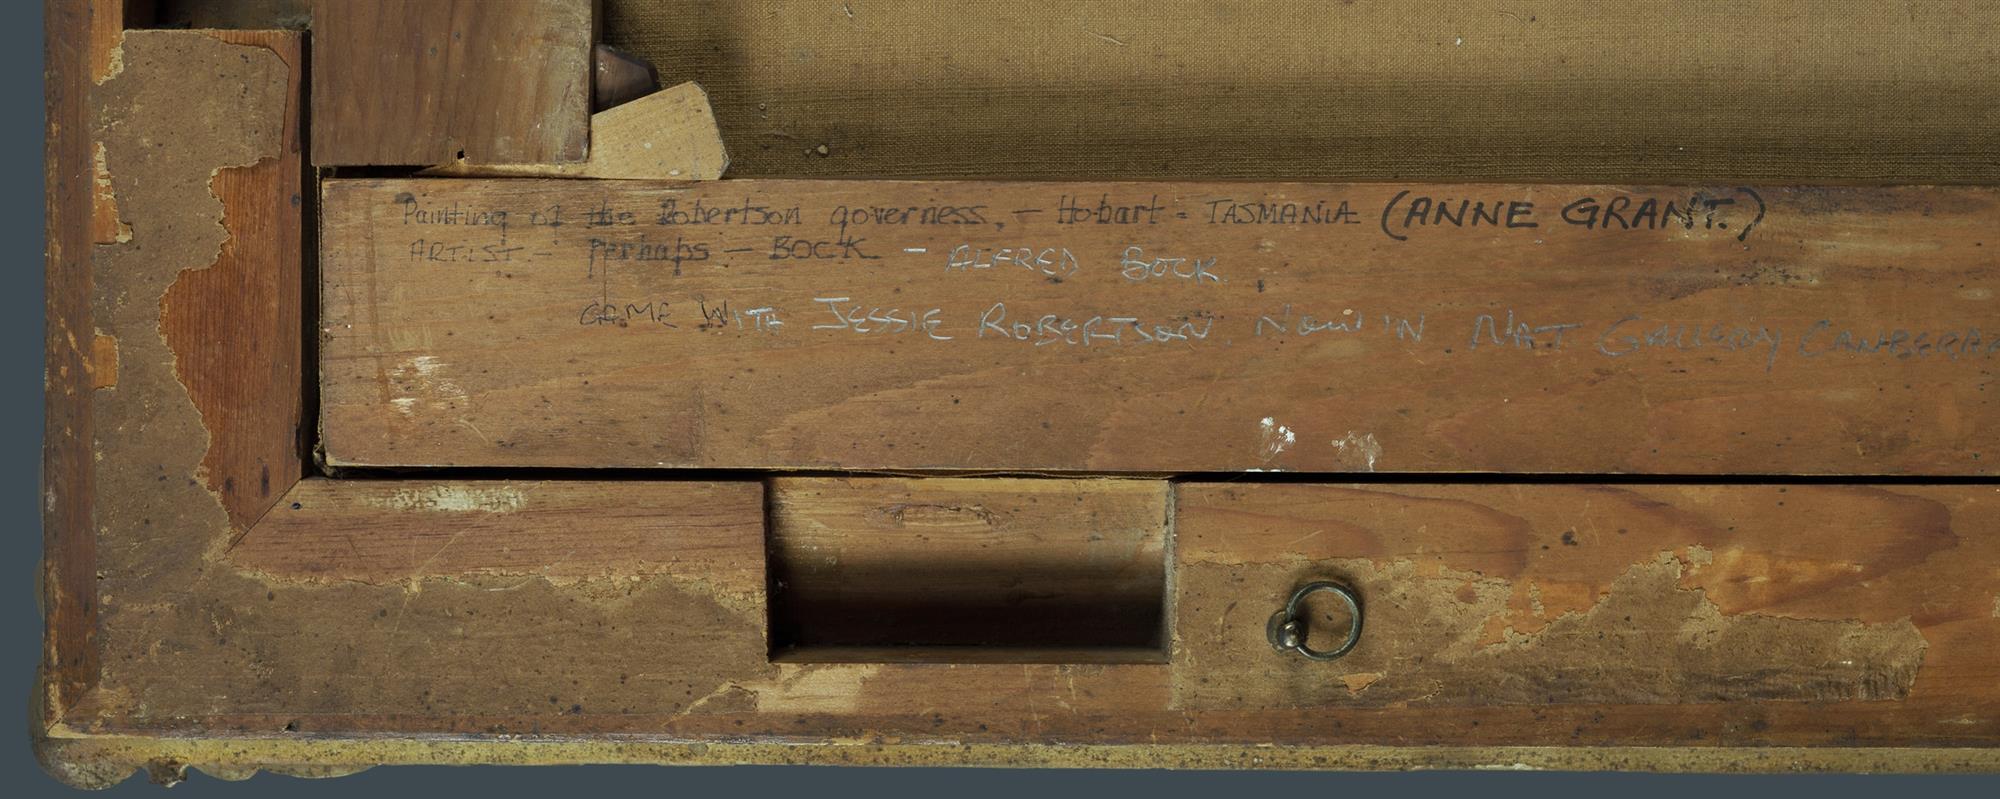 Painting of the Robertson governess. - Hobart - TASMANIA (ANNE GRANT.)
ARTIST - Perhaps - BOCK - ALFRED BOCK.
CAME WITH JESSIE ROBERTSON. NOW IN NAT GALLERY CANBERRA